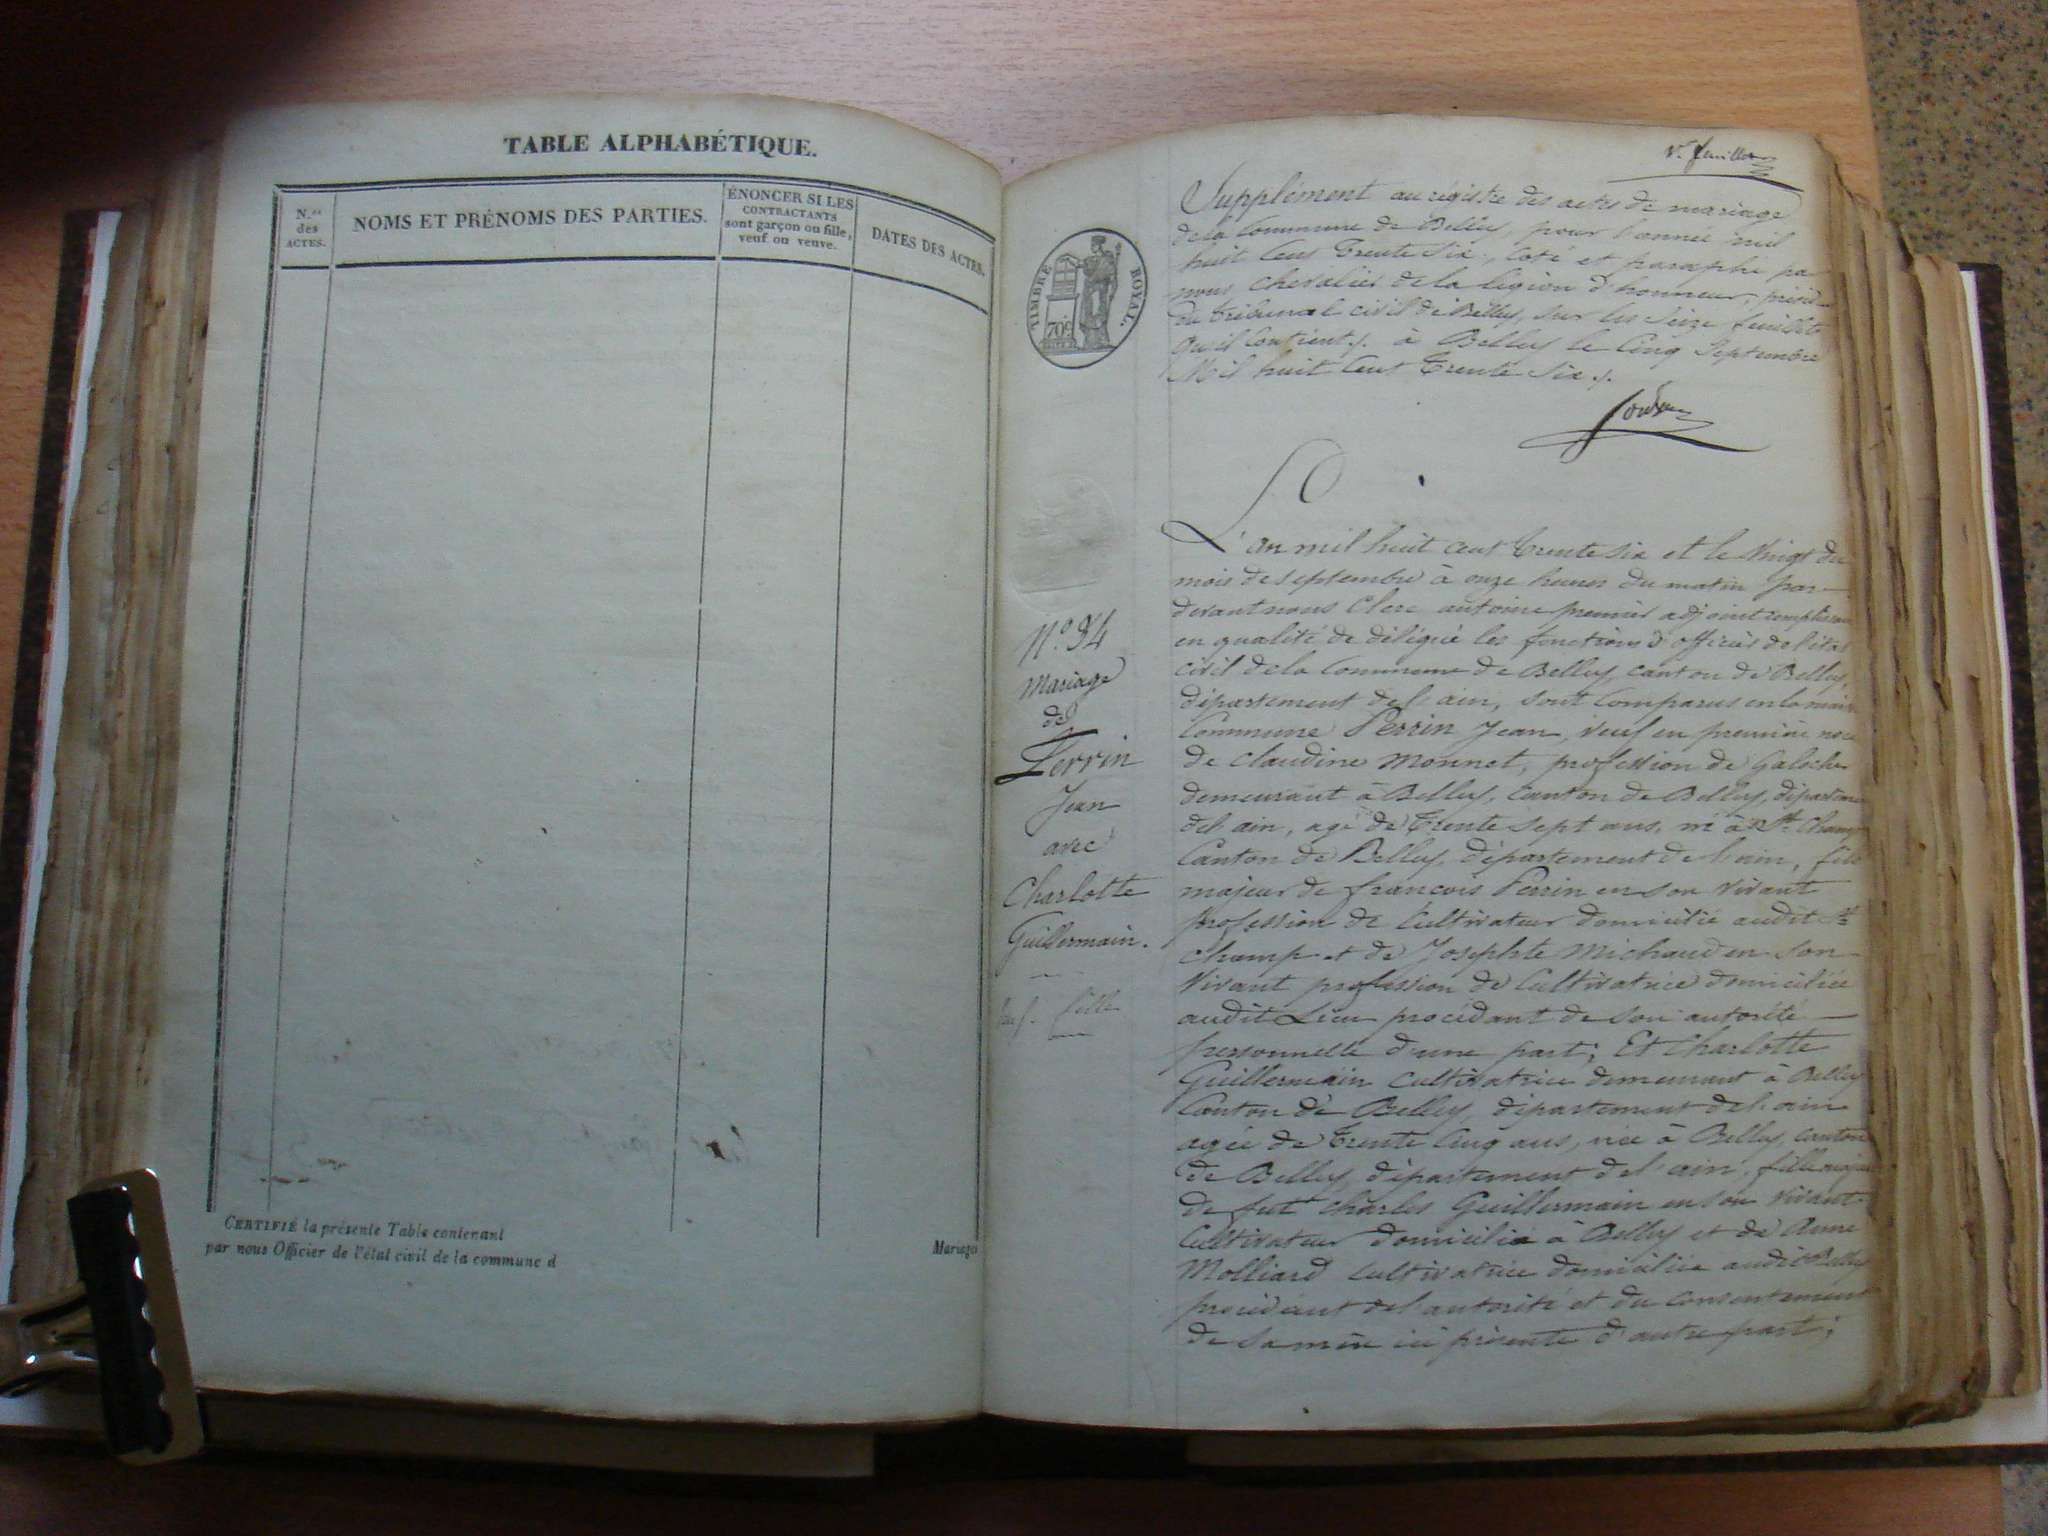 TABLE ALPHABÉTIQUE.
N.os des ACTES.
NOMS ET PRÉNOMS DES PARTIES.
ÉNONCER SI LES CONTRACTANTS sont garçon ou fille, veuf ou veuve.
DATES DES ACTES.
CERTIFIÉ la présente Table contenant
par nous Officier de l'état civil de la commune d
Mariages
1er feuillet
Supplément au régistre des actes de mariage
de la Commune de Belley, pour l'année mil
huit Cent Trente Six, Coté et paraphé par
nous Chevalier de la légion d'honneur, présid
du Tribunal civil de Belley, sur les Seize feuillets
qu'il Contient. à Belley le Cinq Septembre
Mil huit Cent Trente Six.
TIMBRE ROYAL.
70c
N.o 34
Mariage
de
Perrin
Jean
avec
Charlotte
Guillermain.
veuf. fille
L'an mil huit cent Trente six et le Vingt du
mois de septembre à onze heures du matin par-
devant nous Clerc antoine premier adjoint remplissant
en qualité de délégué les fonctions d'officier de l'état
civil de la Commune de Belley, canton de Belley,
département de l'ain, sont Comparus en la maison
Commune Perrin Jean, veuf en première noce
de Claudine Monnet, profession de Galocher
demeurant à Belley, Canton de Belley, départeme
de l'ain, agé de Trente sept ans, né à St. Champ
Canton de Belley, département de l'ain, fils
majeur de françois Perrin en son vivant
profession de Cultivateur domicilié audit St.
champ et de Josephte Michaud en son
Vivant profession de Cultivatrice domiciliée
audit Lieu procédant de son autorité
personnelle d'une part; Et Charlotte
Guillermain Cultivatrice demeurant à Belley
Canton de Belley, département de l'ain
agée de Trente Cinq ans, née à Belley, canton
de Belley, département de l'ain, fille majeu
de fut Charles Guillermain en son vivant
Cultivateur domicilié à Belley et de Anne
Molliard Cultivatrice domiciliée audit Belley
procédant de l'autorité et du consentement
de sa mère ici présente d'autre part;